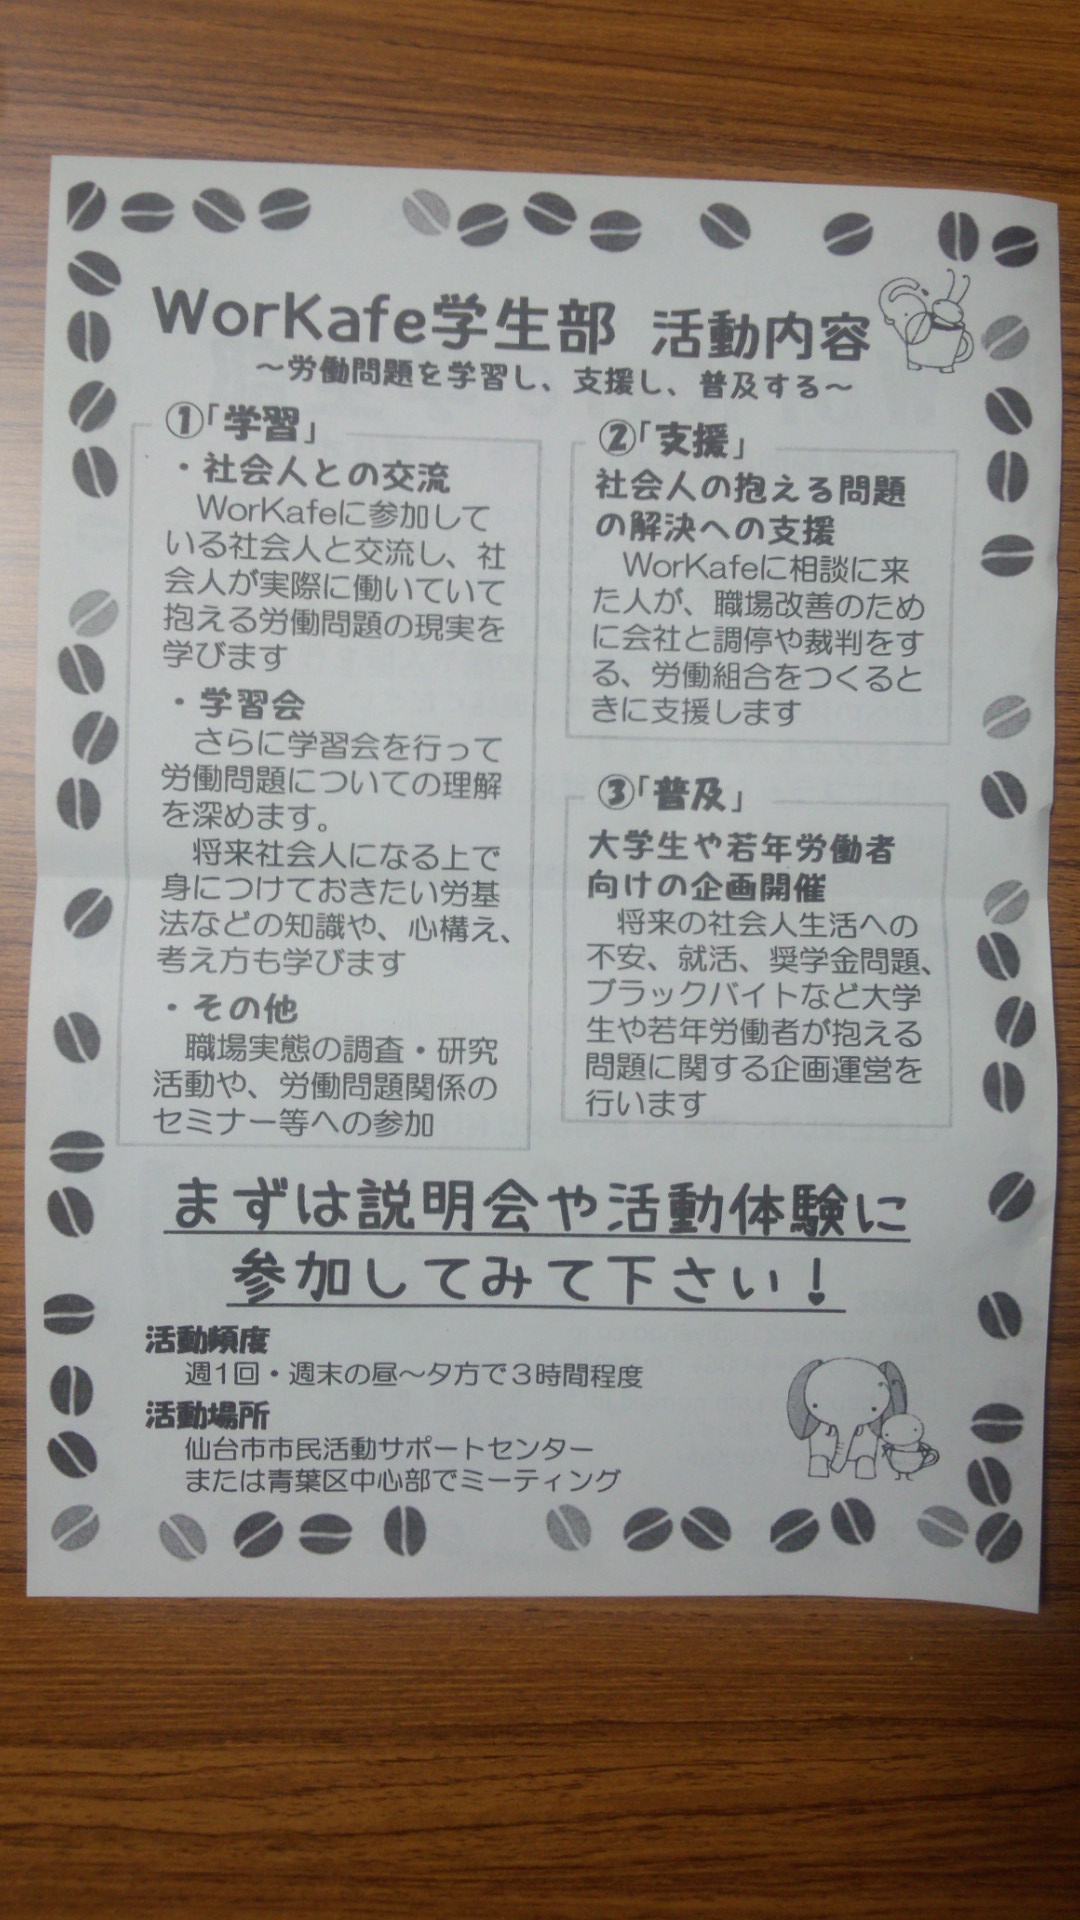 WorKafe学生部 活動内容
～労働問題を学習し、支援し、普及する～
①「学習」
・社会人との交流
WorKafeに参加して
いる社会人と交流し、社
会人が実際に働いていて
抱える労働問題の現実を
学びます
・学習会
さらに学習会を行って
労働問題についての理解
を深めます。
将来社会人になる上で
身につけておきたい労基
法などの知識や、心構え、
考え方も学びます
・その他
職場実態の調査・研究
活動や、労働問題関係の
セミナー等への参加
②「支援」
社会人の抱える問題
の解決への支援
WorKafeに相談に来
た人が、職場改善のため
に会社と調停や裁判をす
る、労働組合をつくると
きに支援します
③「普及」
大学生や若年労働者
向けの企画開催
将来の社会人生活への
不安、就活、奨学金問題、
ブラックバイトなど大学
生や若年労働者が抱える
問題に関する企画運営を
行います
まずは説明会や活動体験に
参加してみて下さい！
活動頻度
週1回・週末の昼～夕方で3時間程度
活動場所
仙台市市民活動サポートセンター
または青葉区中心部でミーティング